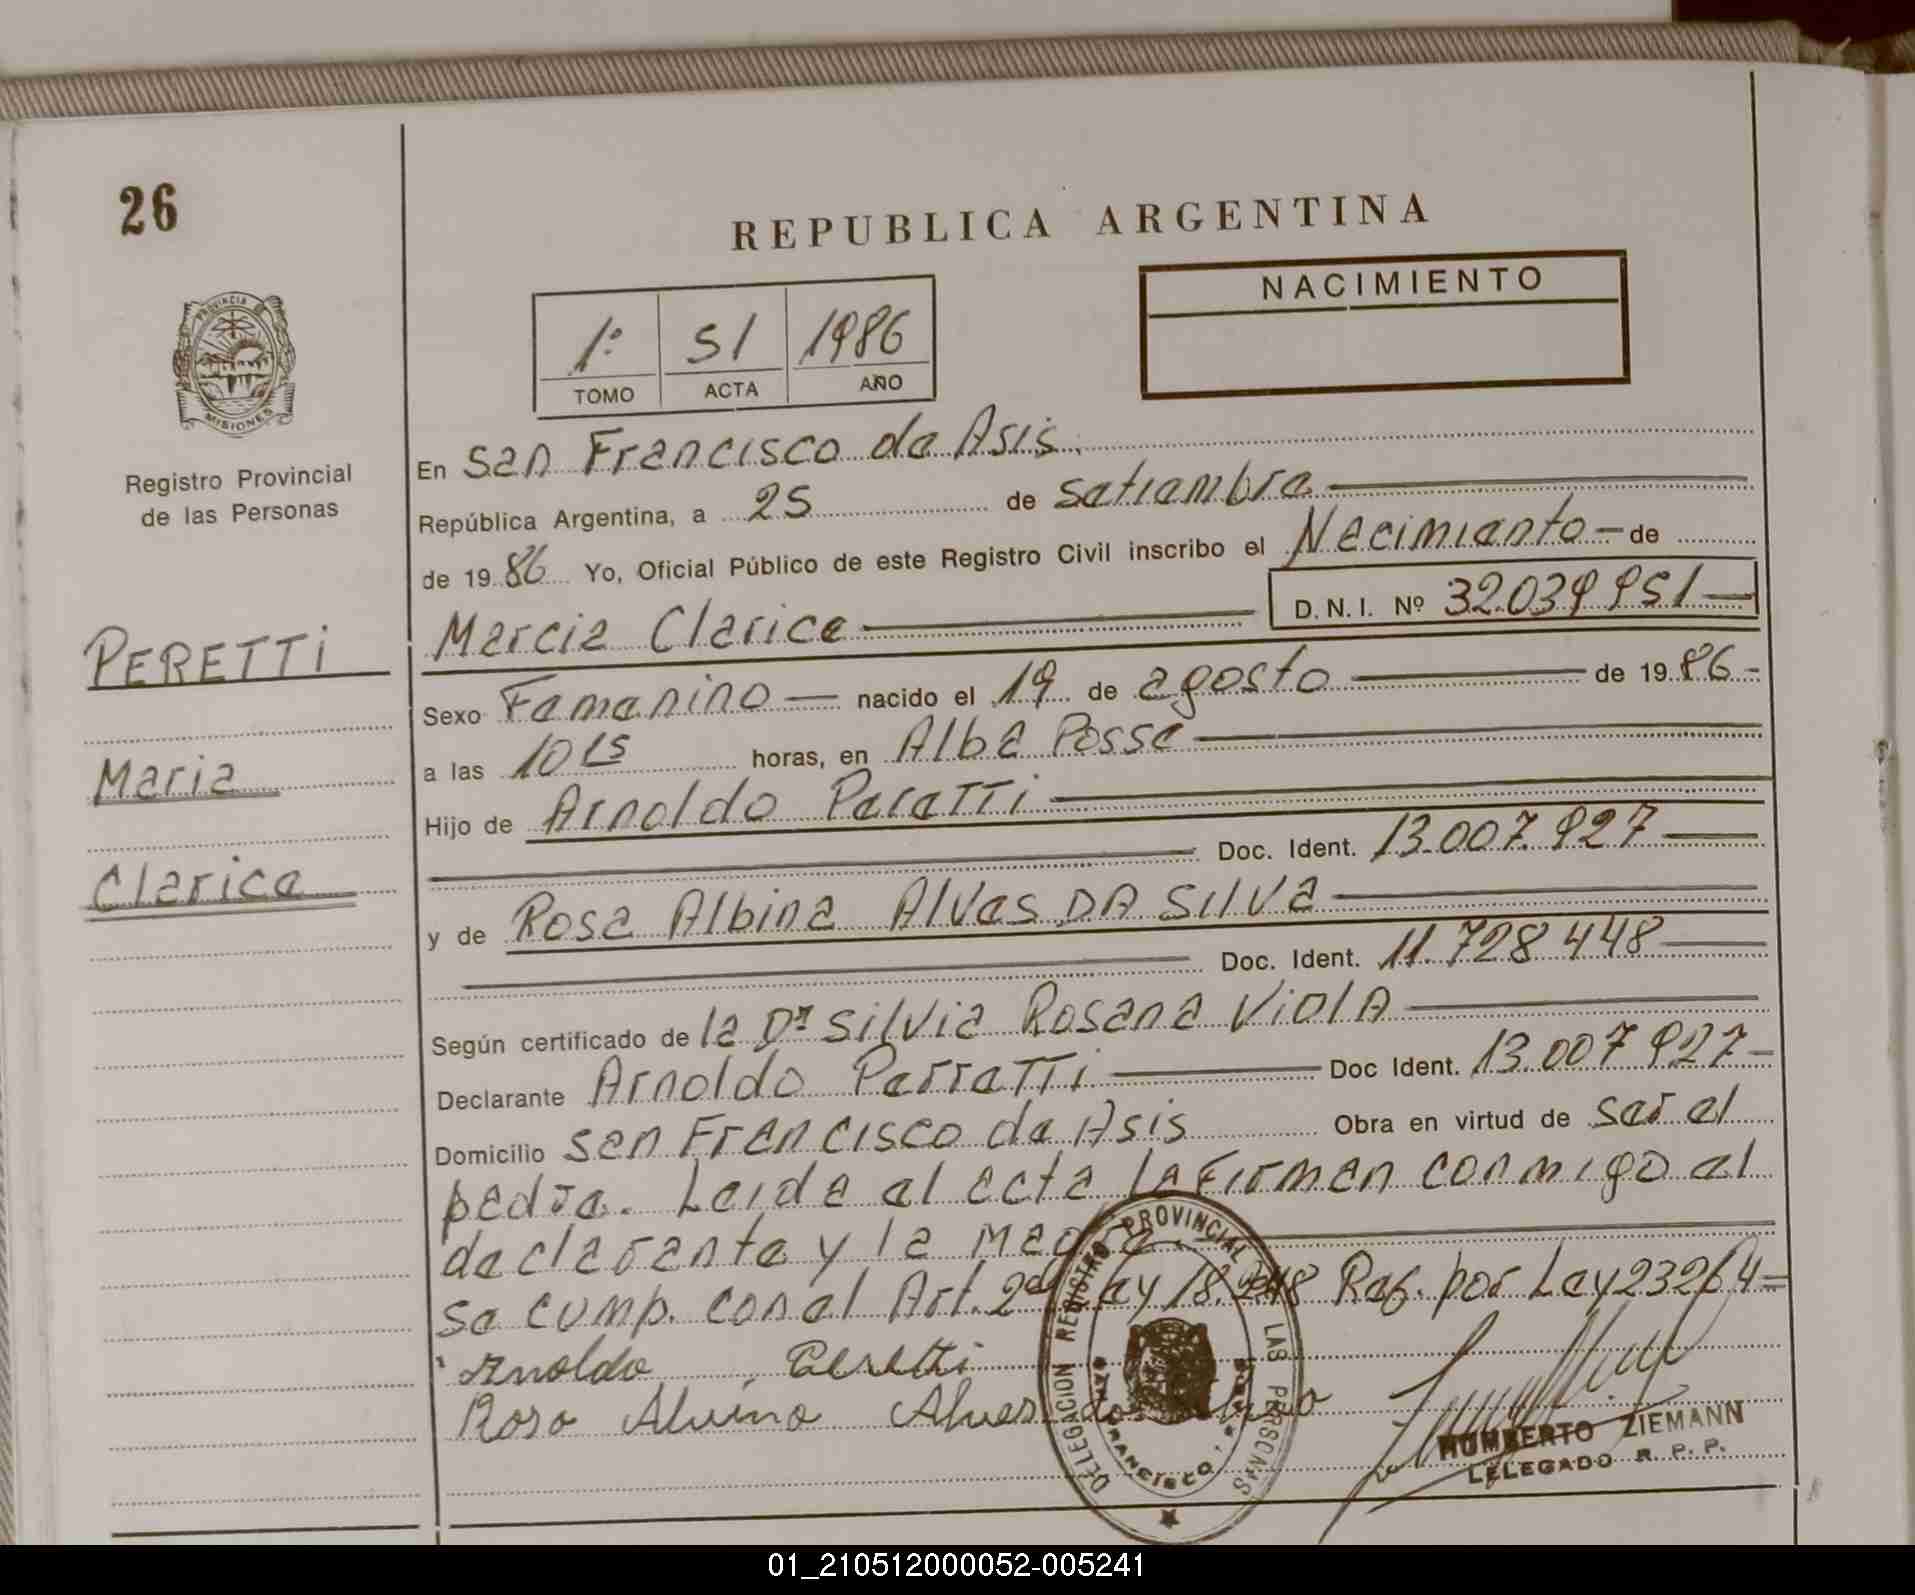 26
REPUBLICA ARGENTINA
NACIMIENTO
1º 51 1986
TOMO ACTA AÑO
PROVINCIA DE MISIONES
Registro Provincial
de las Personas
PERETTI
Maria
Clarice
En San Francisco de Asis.
República Argentina, a 25 de setiembre
de 1986 Yo, Oficial Público de este Registro Civil inscribo el Nacimiento de
Marcia Clarice D.N.I. Nº 32.039.951
Sexo Femenino nacido el 19 de agosto de 1986
a las 10 15 horas, en Alba Posse
Hijo de Arnoldo Peretti
Doc. Ident. 13.007.927
y de Rosa Albina Alves DA SILVA
Doc. Ident. 11.728.448
Según certificado de la Dra Silvia Rosana Viola
Declarante Arnoldo Perretti Doc Ident. 13.007.927
Domicilio San Francisco de Asis Obra en virtud de ser el
padre. Leida el acta la Firman conmigo el
declarante y la madre.
se cump. con el Art. 2º Ley 18.248 Ref. por Ley 23264
Arnoldo Peretti
Rosa Alvina Alves da Silva
DELEGACION REGISTRO PROVINCIAL LAS PERSONAS
SAN FRANCISCO
HUMBERTO ZIEMANN
DELEGADO R. P. P.
01_210512000052-005241